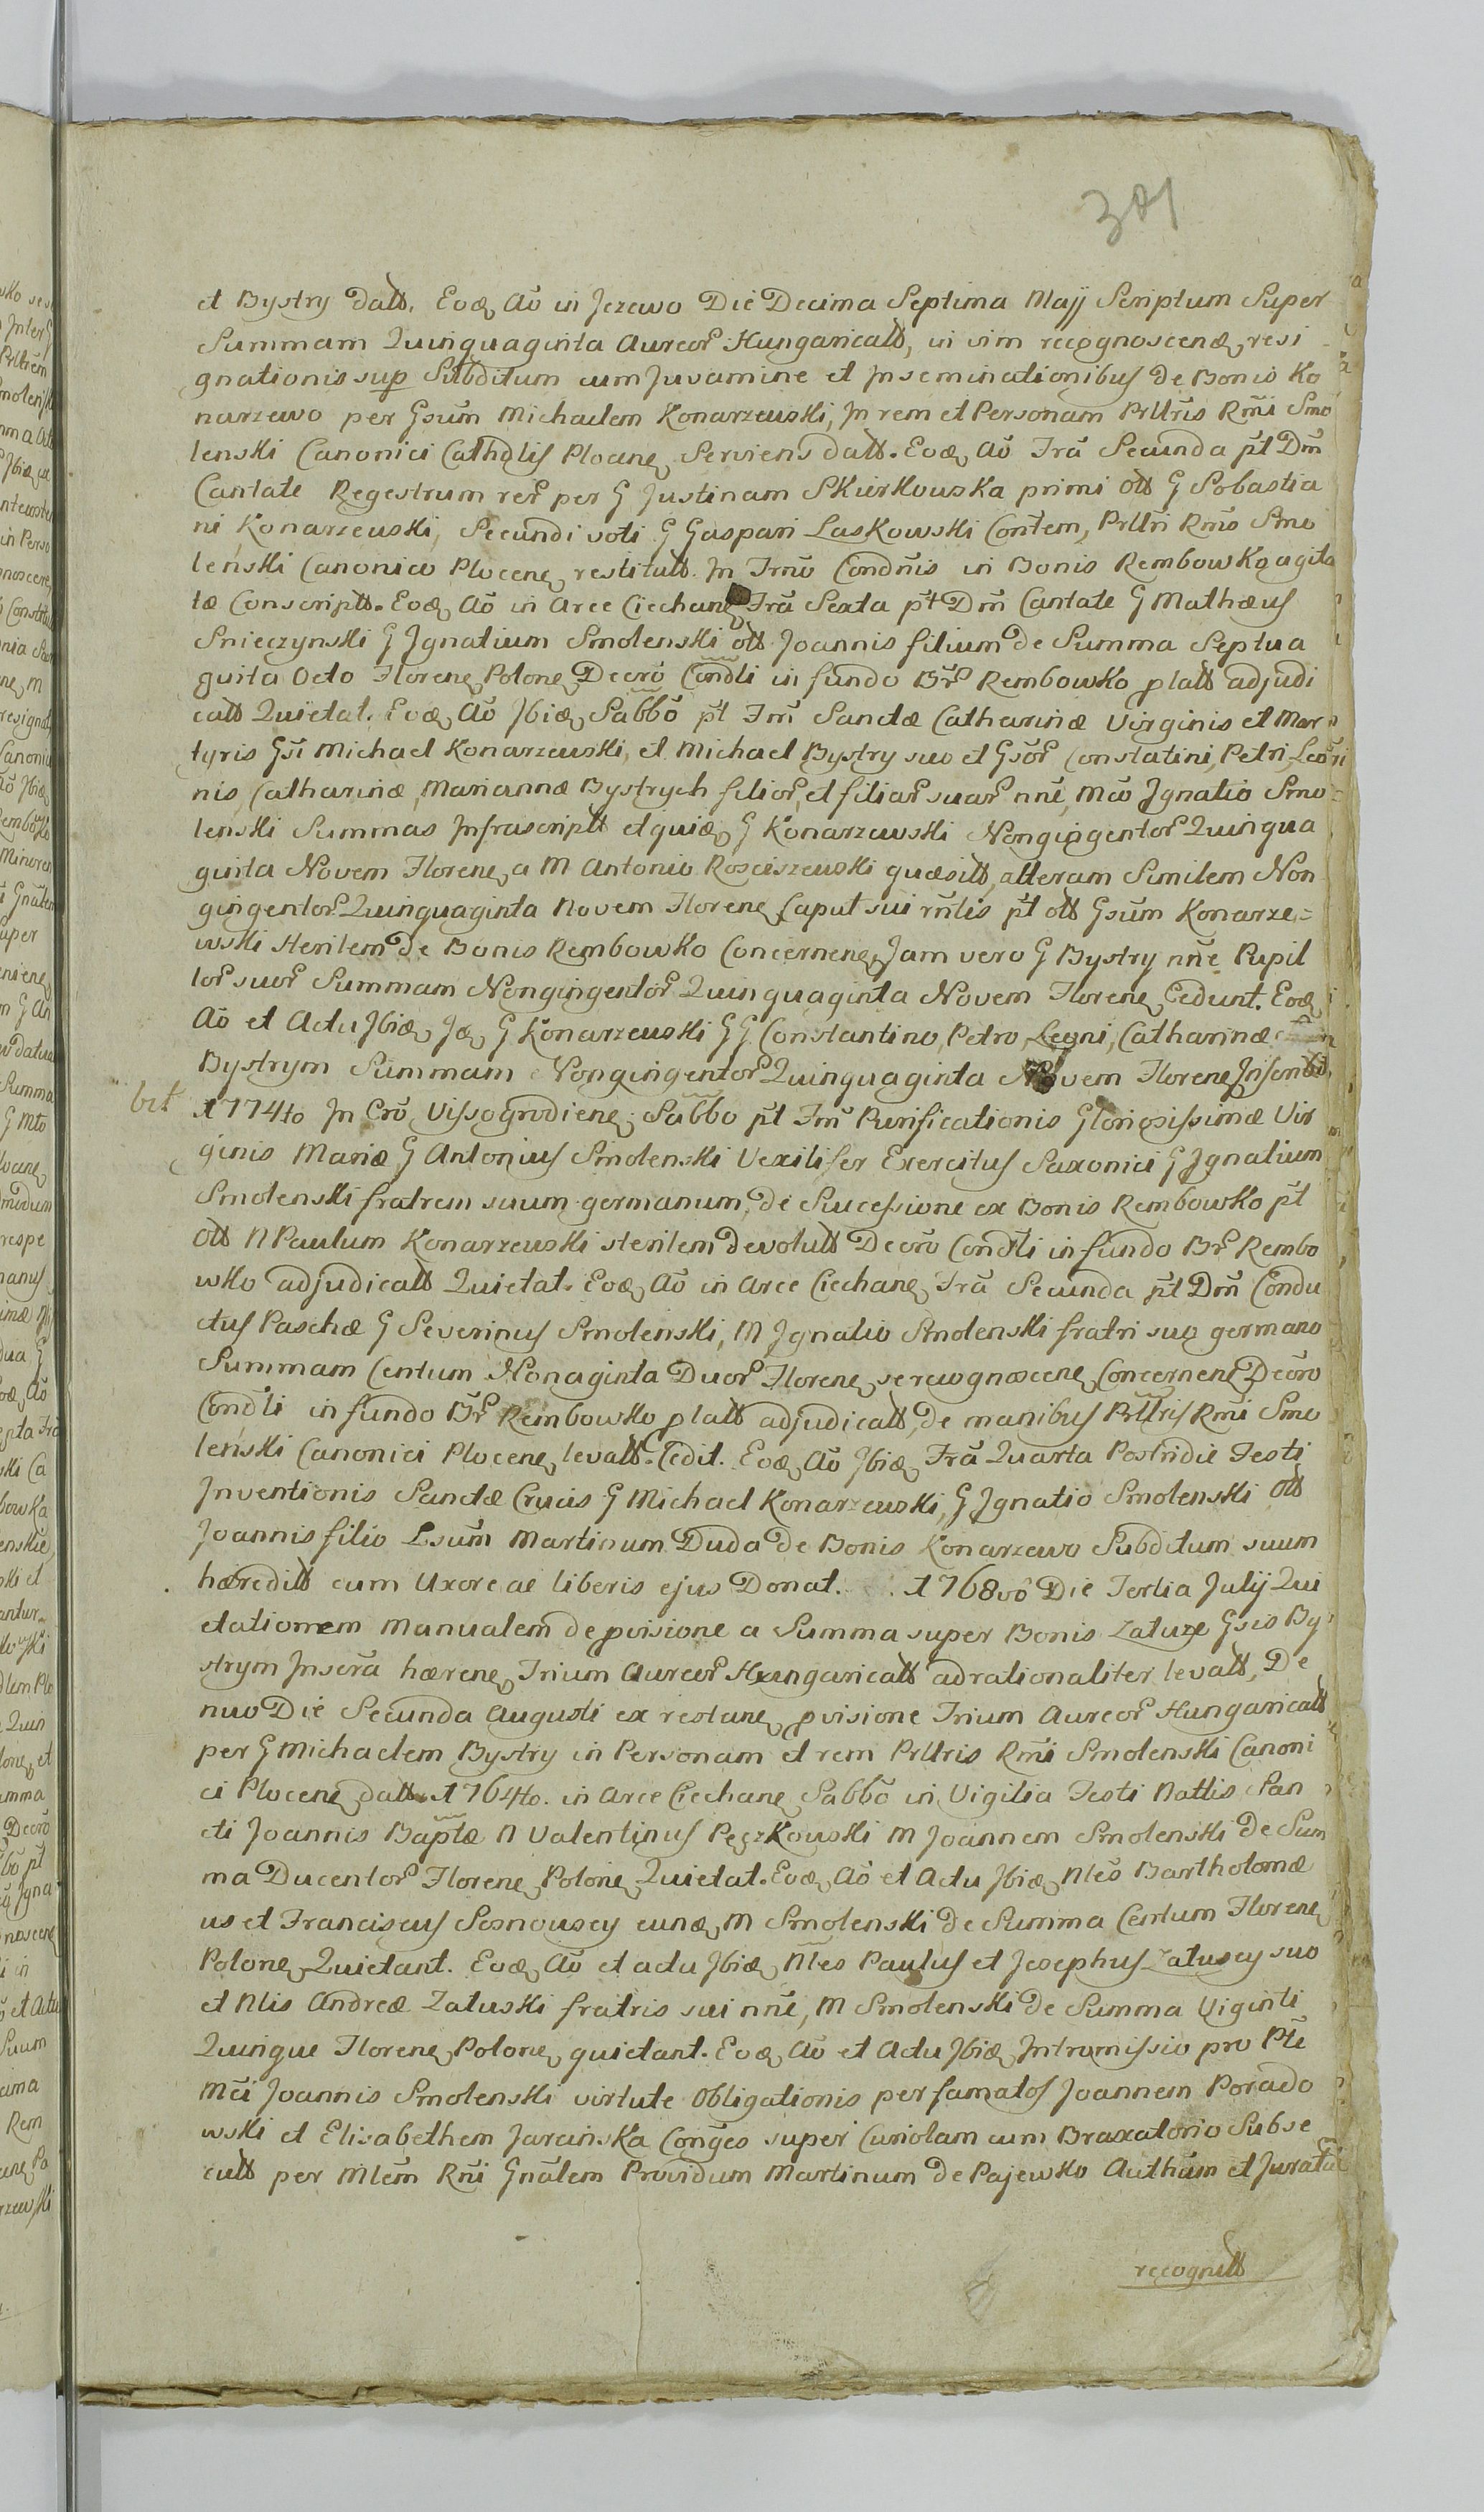 381
et Bystry datt. Eodę Aō in Jezewo Die Decima Septima Majj Scriptum Super
Summam Quinquaginta Aureor Hungaricatt, in vim recognoscenę, resi
gnationis sup Subditum cum Juvamine et Inseminationibus de Bonis Ko
narzewo per Gsum Michaelem Konarzewski, In rem et Personam Prltris Rmi Smo
lenski Canonici Cathdlis Plocenę Serviens datt. Eodę Aō Fra Secunda pt Dm
Cantate Regestrum rer per G Justinam Skierkowska primi ott G Sobastia
ni Konarzewski, Secundi voti G Gaspari Laskowski Contem, Prltri Rms Smo
leński Canonico Plocenę restitutt. In Trno Condnis in Bonis Rembowko agita
tæ Conscriptt. Eodę Aō in Arce Ciechanę Fra Sexta pt Dm Cantate G Mathæus
Snieczynski G Ignatium Smolenski ott Joannis filium de Summa Septua
ginta Octo Florenę Polonę Decro Condli in fundo Br Rembowko platt adjudi
catt Quietat. Eodę Aō Ibidę Sabbo pt Fm Sanctæ Catharinæ Virginis et Mar
tyris Gsi Michael Konarzewski, et Michael Bystry suo et Gsor Constatini, Petri, Leori
nis, Catharinæ, Mariannæ Bystrych filior, et filiar suar nne, Mco Ignatio Smo
lenski Summas Infrascriptt et quidę G Konarzewski Nongingentor Quinqua
ginta Novem Florenę a M Antonio Rosciszewski quæsitt, alteram Similem Non
gingentor Quinquaginta Novem Florenę Caput sui rntis pt ott Gsum Konarze=
wski sterilem de Bonis Rembowko Concernenę, Jam vero G Bystry nne Pupil
lor suor Summam Nongingentor Quinquaginta Novem Florenę Cedunt. Eodę
Aō et Actu Ibidę Idę G Konarzewski GG Constantino, Petro, Leoni, Catharinæ
Bystrym Summam Nongingentor Quinquaginta Novem Florenę Inscribit.
bit 1774to In Cro Vissogrodienę Sabbo pt Fm Purificationis Gloriosissimæ Vir
ginis Mariæ G Antonius Smolenski Vexilifer Exercitus Saxonici G Ignatium
Smolenski fratrem suum germanum, de Successione ex Bonis Rembowko pt
ott N Paulum Konarzewski sterilem devolutt Decro Condli in fundo Br Rembo
wko adjudicatt Quietat. Eodę Aō in Arce Ciechanę Fra Secunda pt Dm Condu
ctus Paschæ G Severinus Smolenski, M Ignatio Smolenski fratri suo germano
Summam Centum Nonaginta Duor Florenę se recognoscenę Concernenę Decro
Condli in fundo Br Rembowko platt adjudicatt, de manibus Prltris Rmi Smo
leński Canonici Plocenę levatt. Cedit. Eodę Aō Ibidę Fra Quarta Postridie Festi
Inventionis Sanctæ Crucis G Michael Konarzewski, G Ignatio Smolenski ott
Joannis filio Lsum Martinum Duda de Bonis Konarzewo Subditum suum
hæreditt cum Uxore ac liberis ejus Donat. 1768vo Die Tertia Julij Qui
etationem Manualem de pvisione a Summa super Bonis Zaluze Gsis By
strym Inscra hærenę, Trium Aureor Hungaricatt adrationaliter levatt, De
nuo Die Secunda Augusti ex restanę pvisione Trium Aureor Hungaricatt
per G Michaelem Bystry in Personam et rem Prltris Rmi Smolenski Canoni
ci Plocenę datt. 1764to. in Arce Ciechanę Sabbo in Vigilia Festi Nattis San
cti Joannis Baptæ N Valentinus Pęczkowski M Joannem Smolenski de Sum
ma Ducentor Florenę Polonę Quietat. Eodę Aō et Actu Ibidę Nles Bartholomæ
us et Franciscus Sosnowscy eundę M Smolenski de Summa Centum Florenę
Polonę Quietant. Eodę Aō et actu Ibidę Nles Paulus et Josephus Zaluscy suo
et Nlis Andreæ Zaluski fratris sui nne, M Smolenski de Summa Viginti
Quinque Florenę Polonę quietant. Eodę Aō et Actu Ibidę Intromissio pro Pte
Mci Joannis Smolenski virtute Obligationis per famatos Joannem Porado
wski et Elisabethem Jarcińska Conges super Curiolam cum Braxatorio Subse
cutt per Mlem Rni Gnalem Providum Martinum de Pajewko Authum et Juratū
recognitt